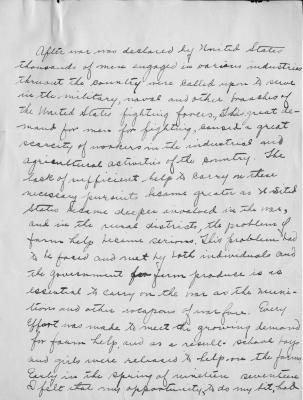 After war was declared by United States
thousands of men engaged in various industries
thruout the country were called upon to serve
in the military, naval and other branches of
the United States fighting forces. This great de-
mand for men for fighting, caused a great
scarcity of workers in the industrial and
agricultural activities of the country. The
lack of sufficient help to carry on these
necessary pursuits became greater as
States became deeper involved in the war,
and in the rural districts, the problem of
farm help became serious. This problem had
to be faced and met by both individuals and
the government for farm produce is as
essential to carry on the war as the muni-
tions and other weapons of warfare. Every
effort was made to meet the growing demand
for farm help, and as a result- school boys
and girls were released to help on the farms
Early in the spring of nineteen seventeen
I felt that my opportunity, to do my bit, had